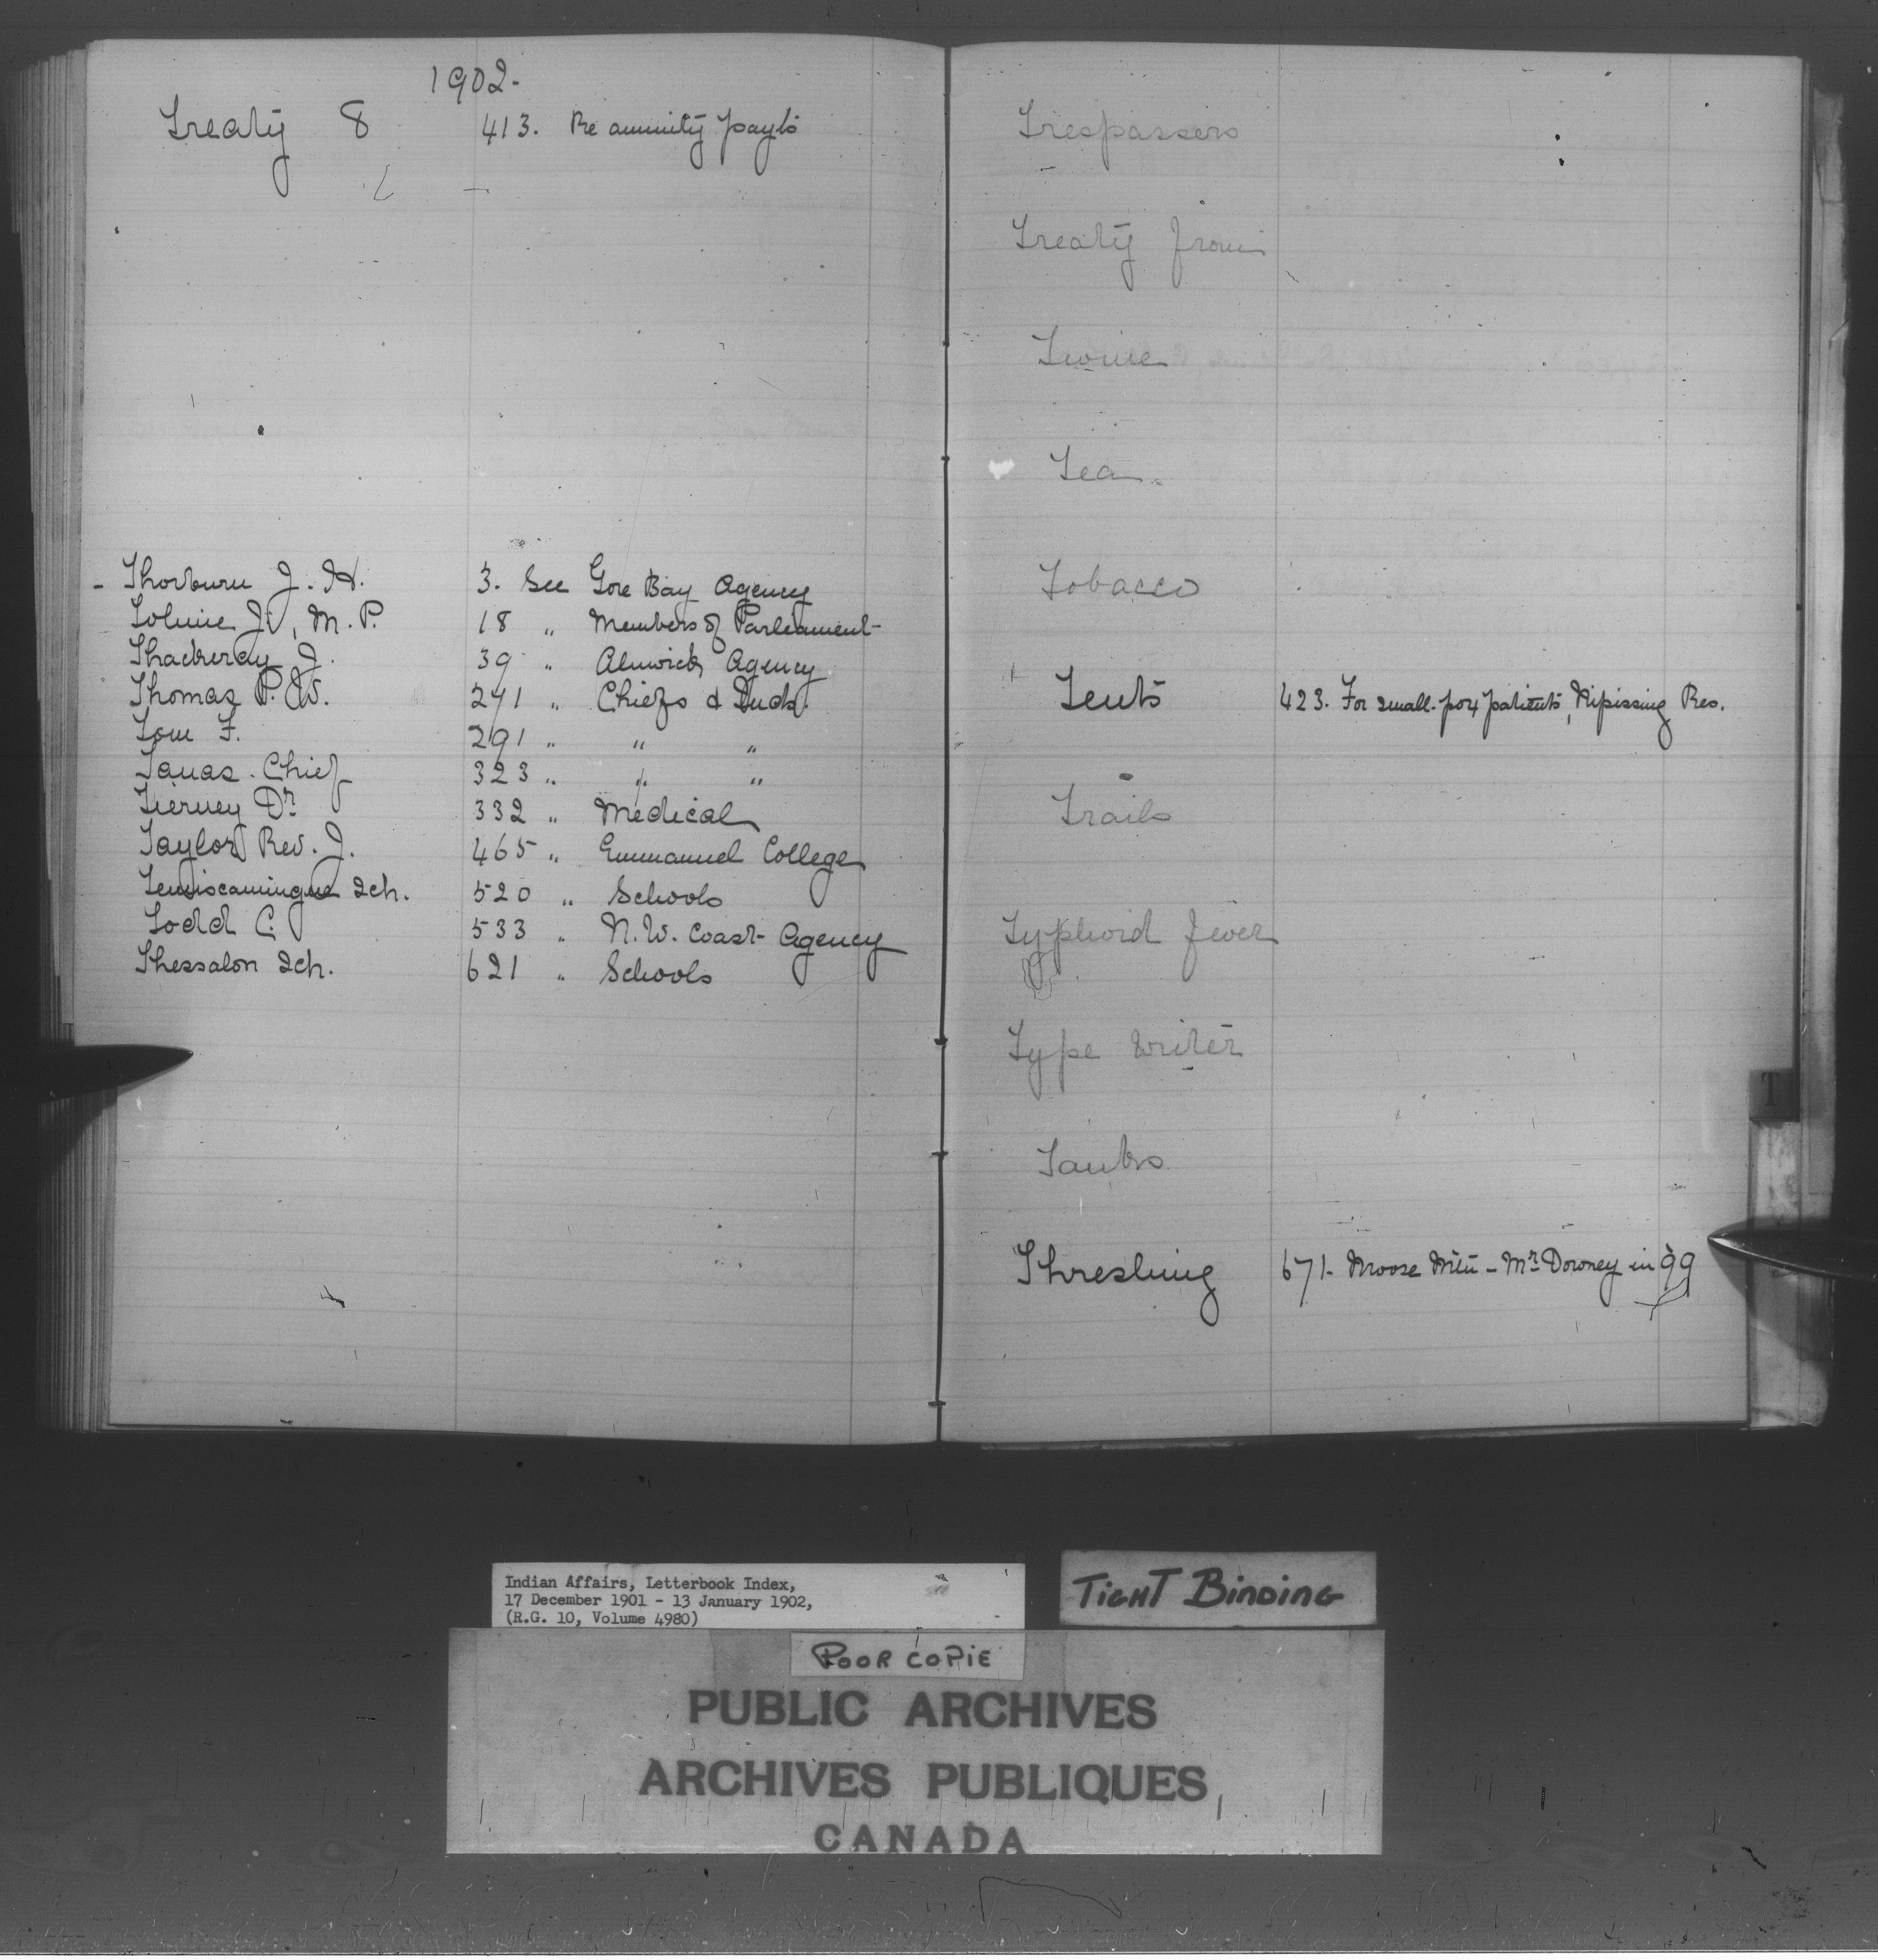 1902-
Treaty 8 413. Re annuity payts
- Thorburn J. H. 3. See Gore Bay Agency
Tolmie J., M. P. 18 " Members of Parliament
Thackeray J. 39 " Alnwick Agency
Thomas P. W. 241 " Chiefs & Inds.
Tom F. 291 " " "
Tanas Chief 323 " " "
Tierney Dr. 332 " Medical
Taylor Rev. J. 465 " Emmanuel College
Temiscamingue Sch. 520 " Schools
Todd C. 533 " N.W. Coast Agency
Thessalon Sch. 621 " Schools
Trespassers
Treaty from
Twine
Tea
Tobacco
Tents 423. For small-pox patients, Nipissing Res.
Trails
Typhoid Fever
Type Writer
Tanks
Threshing 671- Moose Mtn - Mr. Downey in 99
T
Indian Affairs, Letterbook Index,
17 December 1901 - 13 January 1902,
(R.G. 10, Volume 4980)
TIGHT BINDING
POOR COPIE
PUBLIC ARCHIVES
ARCHIVES PUBLIQUES
CANADA